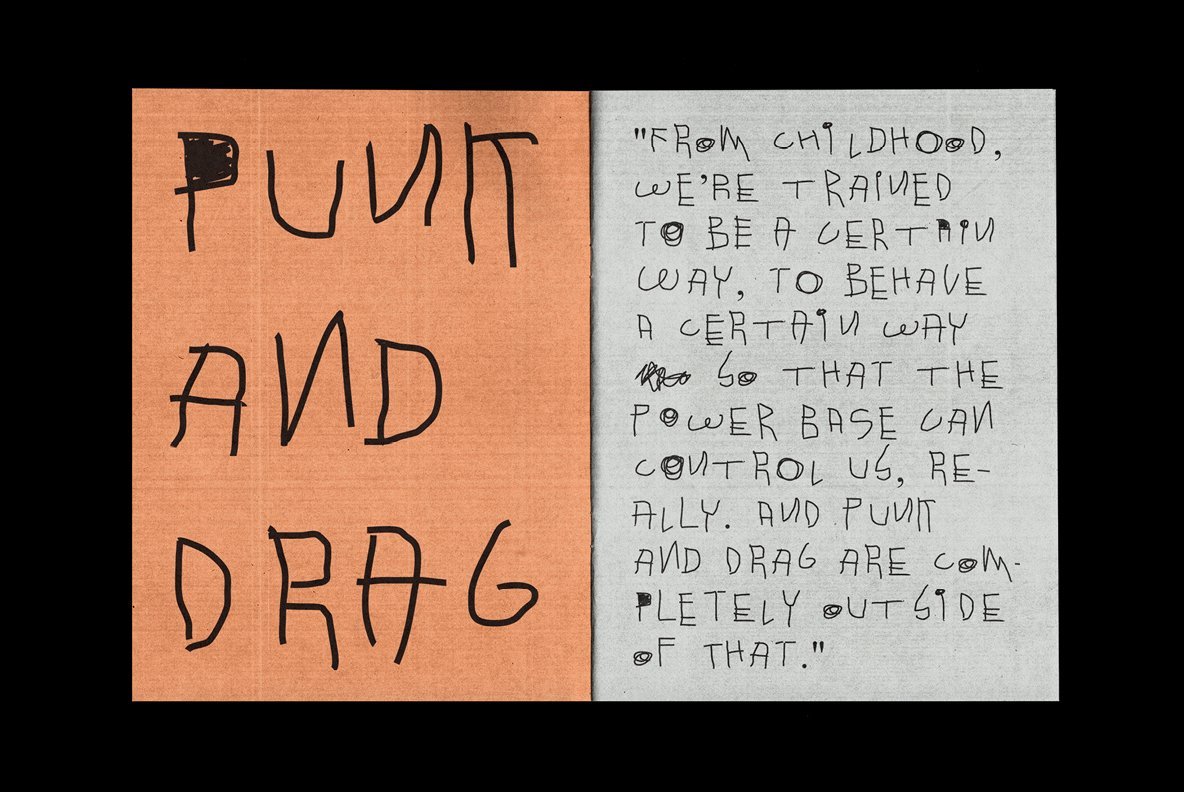 PUNK
AND
DRAG
"FROM CHILDHOOD,
WE'RE TRAINED
TO BE A CERTAIN
WAY, TO BEHAVE
A CERTAIN WAY
SO THAT THE
POWER BASE CAN
CONTROL US, RE-
ALLY. AND PUNK
AND DRAG ARE COM-
PLETELY OUTSIDE
OF THAT."